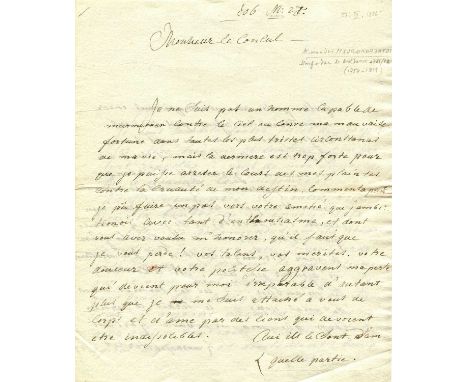 Monsieur le Consul —
Je ne suis pas un homme capable de
contre le Ciel ou contre ma mauvaise
fortune dans toutes les plus tristes circonstances
de ma vie, mais la derniere est trop forte pour
que je puisse arreter le cours de mes plaintes
contre la cruauté de mon destin. Comment a peine
je pûs faire un pas vers votre amitié que j'ambi-
avec tant d'enthousiasme, et dont
vous avez voulu m'honorer, qu'il faut que
je vous perde! vos talens, vos merites, votre
douceur et votre politesse aggravent ma perte
qui devient pour moi irreparable d'autant
plus que je me suis attaché a vous de
corps et d'ame par des liens qui devroient
etre indissolubles.
quelle partie.